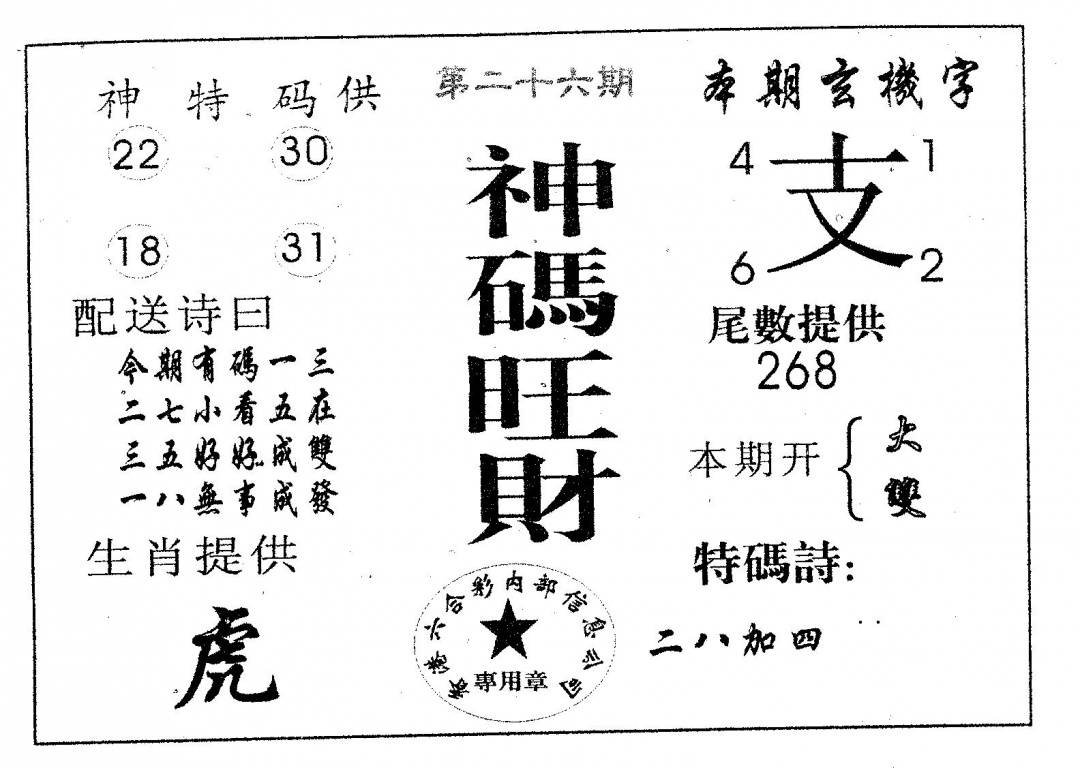 第二十六期
神碼旺財
神特码供
22 30
18 31
配送诗曰
今期有碼一三
二七小看五在
三五好好成雙
一八無事成發
生肖提供
虎
香港六合彩内部信息公司
專用章
本期玄機字
4 1
支
6 2
尾數提供
268
本期开
大
雙
特碼詩:
二八加四